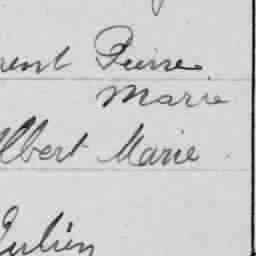 rent Pierre
Marie
Albert Marie
Julien